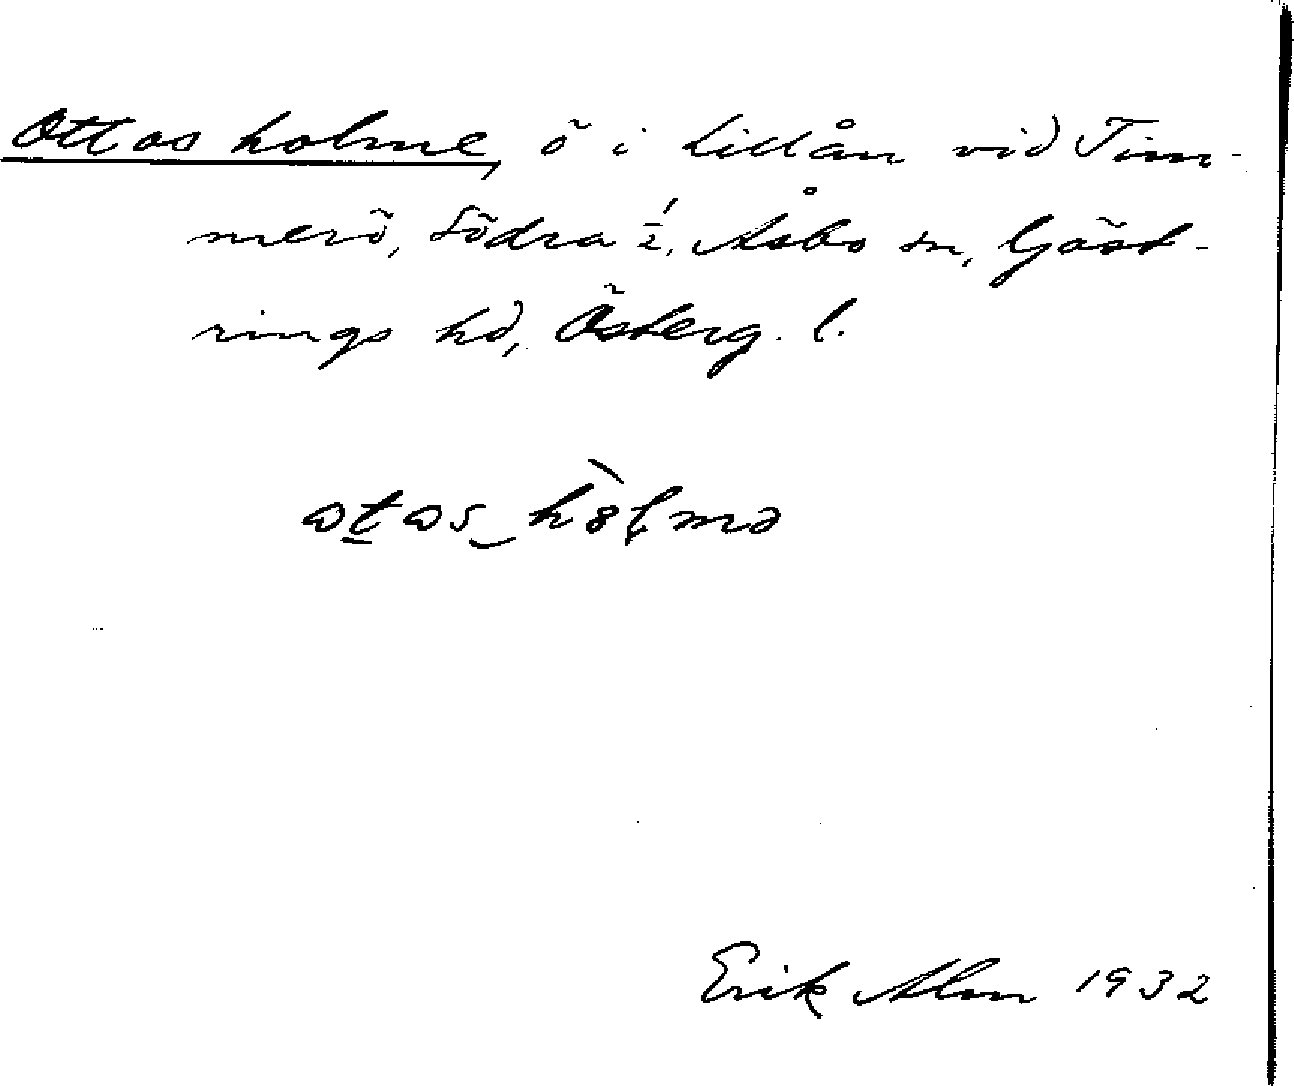 Ottos holme, ö i Lillån vid Tim-
merö, Södra 1/2, Åsbo sn, Göst-
rings hd, Österg. l.
otos hòlmə
Erik Alm 1932